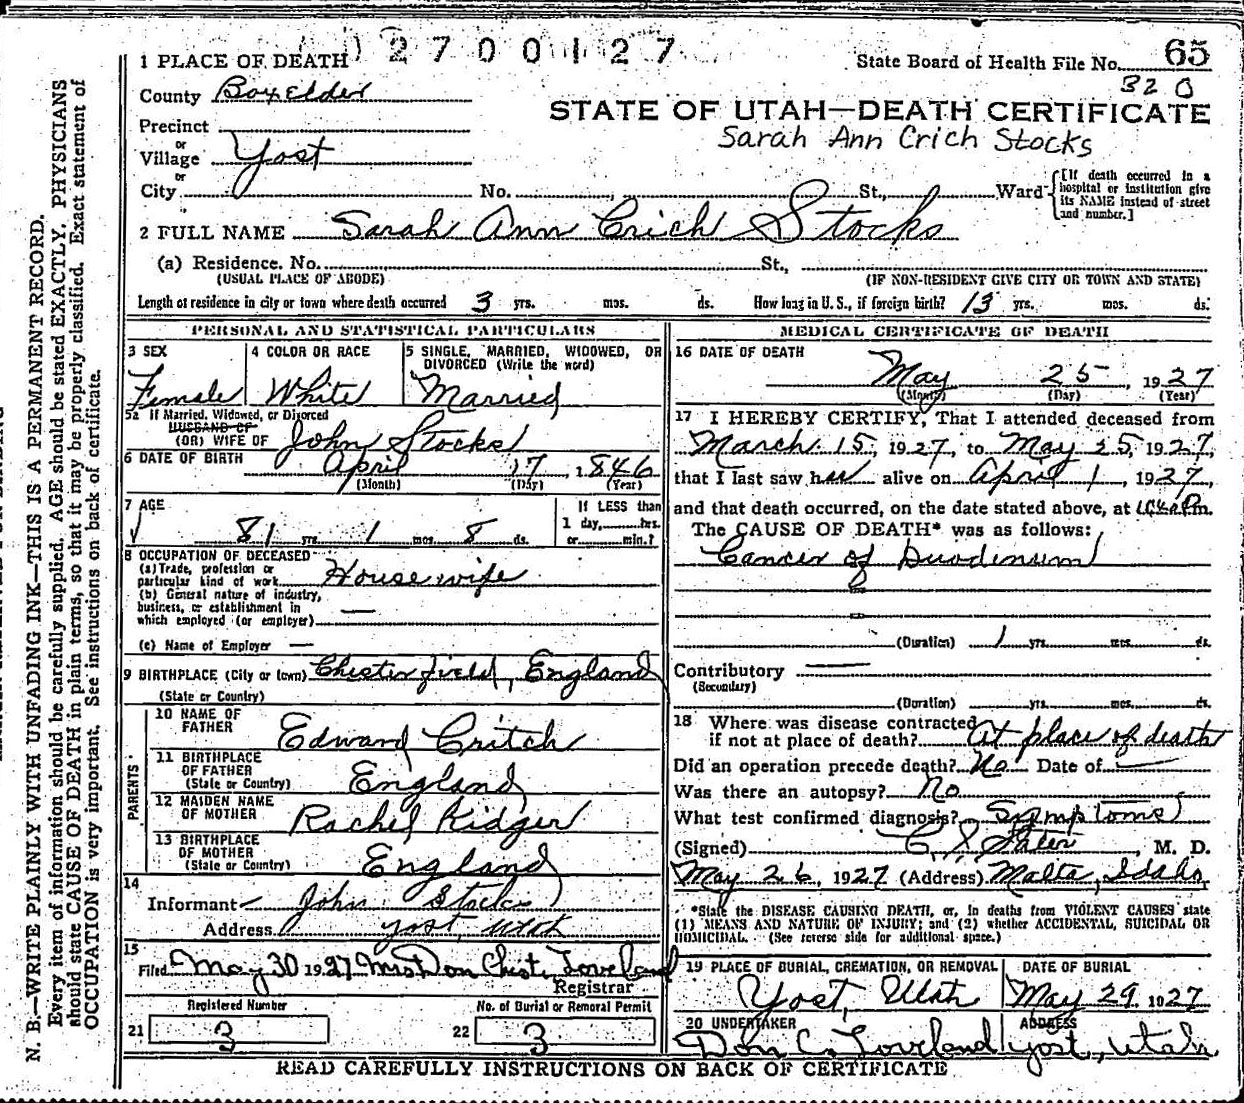 2700127
1 PLACE OF DEATH
State Board of Health File No. 65
320
County Box Elder
STATE OF UTAH—DEATH CERTIFICATE
Sarah Ann Crich Stocks
Precinct
or
Village Yost
or
City No. St., Ward
[If death occurred in a hospital or institution give its NAME instead of street and number.]
2 FULL NAME Sarah Ann Crich Stocks
(a) Residence. No. St.,
(USUAL PLACE OF ABODE) (IF NON-RESIDENT GIVE CITY OR TOWN AND STATE)
Length of residence in city or town where death occurred 3 yrs. mos. ds. How long in U.S., if foreign birth? 13 yrs. mos. ds.
PERSONAL AND STATISTICAL PARTICULARS
3 SEX
Female
4 COLOR OR RACE
White
5 SINGLE, MARRIED, WIDOWED, OR
DIVORCED (Write the word)
Married
5a If Married, Widowed, or Divorced
HUSBAND OF
(OR) WIFE OF John Stocks
6 DATE OF BIRTH April 17, 1846
(Month) (Day) (Year)
7 AGE
81 yrs. 1 mos. 8 ds.
If LESS than
1 day, hrs.
or min.?
8 OCCUPATION OF DECEASED
(a) Trade, profession or
particular kind of work Housewife
(b) General nature of industry,
business, or establishment in
which employed (or employer)
(c) Name of Employer —
9 BIRTHPLACE (City or town) Chesterfield, England
(State or Country)
PARENTS
10 NAME OF
FATHER Edward Critch
11 BIRTHPLACE
OF FATHER
(State or Country) England
12 MAIDEN NAME
OF MOTHER Rachel Kidger
13 BIRTHPLACE
OF MOTHER
(State or Country) England
14
Informant John Stocks
Address Yost, Utah
15
Filed May 30 1927 Mrs Don Chest. Loveland
Registrar
Registered Number
21 3
No. of Burial or Removal Permit
22 3
MEDICAL CERTIFICATE OF DEATH
16 DATE OF DEATH
May 25, 1927
(Month) (Day) (Year)
17 I HEREBY CERTIFY, That I attended deceased from
March 15, 1927, to May 25, 1927,
that I last saw her alive on April 1, 1927,
and that death occurred, on the date stated above, at m.
The CAUSE OF DEATH* was as follows:
Cancer of Duodenum
(Duration) 1 yrs. mos. ds.
Contributory
(Secondary)
(Duration) yrs. mos. ds.
18 Where was disease contracted
if not at place of death? At place of death
Did an operation precede death? No Date of —
Was there an autopsy? No
What test confirmed diagnosis? Symptoms
(Signed) C. S. , M. D.
May 26, 1927 (Address) Malta, Idaho
*State the DISEASE CAUSING DEATH, or, in deaths from VIOLENT CAUSES state
(1) MEANS AND NATURE OF INJURY; and (2) whether ACCIDENTAL, SUICIDAL OR
HOMICIDAL. (See reverse side for additional space.)
19 PLACE OF BURIAL, CREMATION, OR REMOVAL
Yost, Utah
DATE OF BURIAL
May 29, 1927
20 UNDERTAKER
Don C. Loveland
ADDRESS
Yost, Utah
READ CAREFULLY INSTRUCTIONS ON BACK OF CERTIFICATE
N. B.—WRITE PLAINLY WITH UNFADING INK—THIS IS A PERMANENT RECORD.
Every item of information should be carefully supplied. AGE should be stated EXACTLY. PHYSICIANS
should state CAUSE OF DEATH in plain terms, so that it may be properly classified. Exact statement of
OCCUPATION is very important. See instructions on back of certificate.